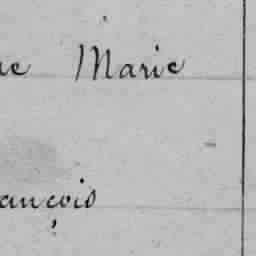 ne Marie
ançois